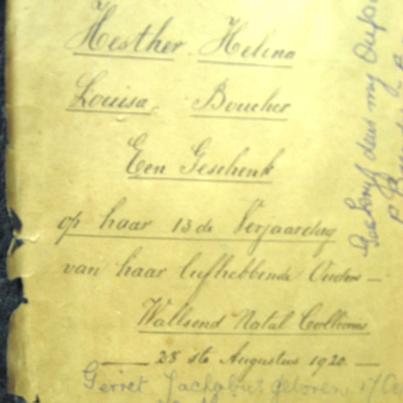 Hesther Helena
Louisa Boucher
Een Geschenk
op haar 13de Verjaardag
van haar liefhebbende Ouders —
Wallsend Natal Collieries
— 28ste Augustus 1920 —
Gerret Jachobus geboren 17
Geskryf deur my Oupa